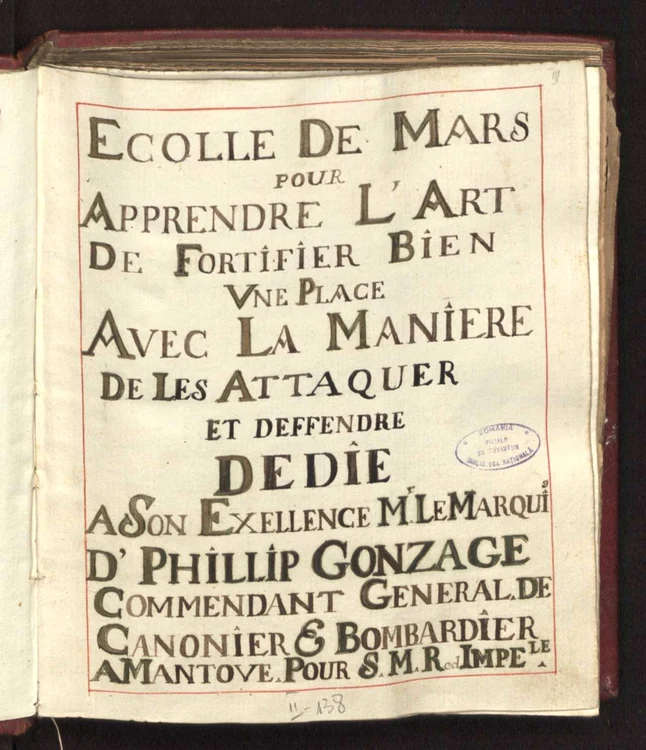 ECOLLE DE MARS
POUR
APPRENDRE L'ART
DE FORTÎFÎER BÎEN
VNE PLACE
AVEC LA MANÎERE
DE LES ATTAQUER
ET DEFFENDRE
DEDÎE
A SON EXELLENCE Mr. LE MARQUÎS
D' PHÎLLÎP GONZAGE
COMMENDANT GENERAL. DE
CANONÎER & BOMBARDÎER
A MANTOVE. POUR S. M. R ed. IMPELE.
ROMANIA
FILIALA
BIBLIOTECA NATIONALA
II-138